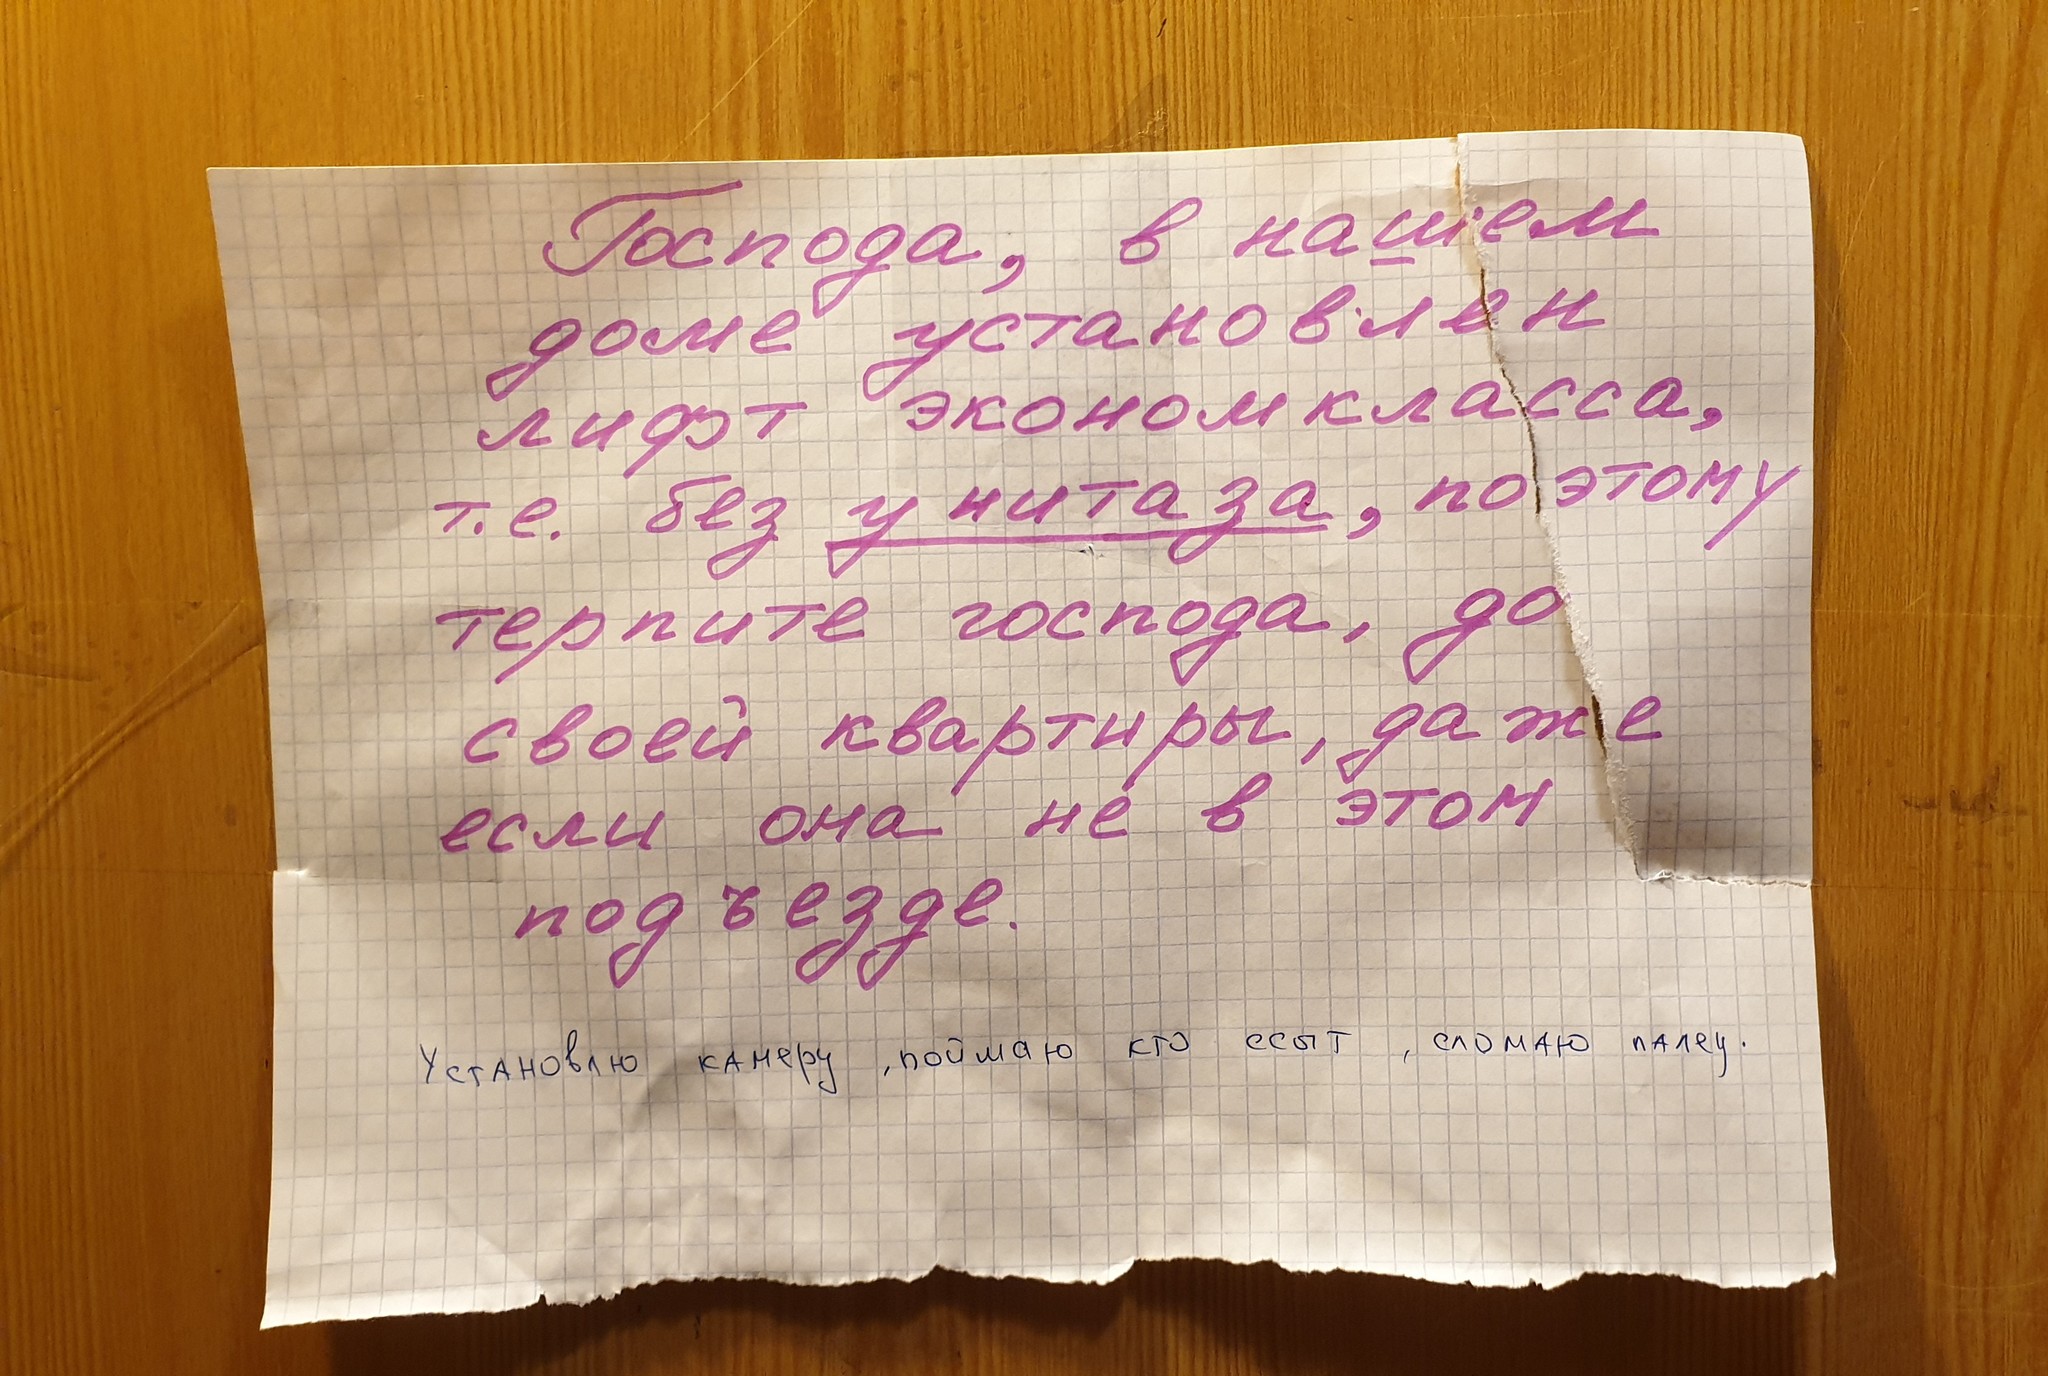 Господа, в нашем
доме установлен
лифт экономкласса,
т.е. без унитаза, поэтому
терпите господа, до
своей квартиры, даже
если она не в этом
подъезде.
Установлю камеру ,поймаю кто ссыт , сломаю палец.